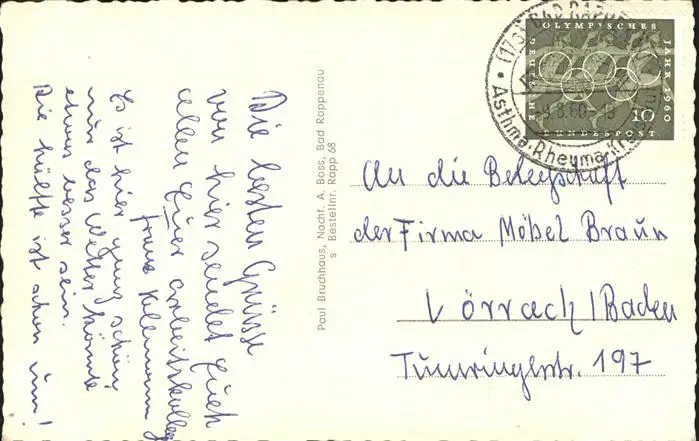 Die besten Grüsse
von hier sendet Euch
allen Euer Arbeitskolleg
Franz
Es ist hier ganz schön
nur das Wetter könnte
etwas besser sein.
Die Hälfte ist schon um!
Paul Bruchhaus, Nachf. A. Bass, Bad Rappenau
s Bestellnr. Rapp 68
(173) BAD RAPPE
Asthma-Rheuma-Kr
-9.8.60-
OLYMPISCHES
JAHR 1960
DEUTSCHE
BUNDESPOST
10
An die Belegschaft
der Firma Möbel Braun
Lörrach/Baden
Tumringerstr. 197